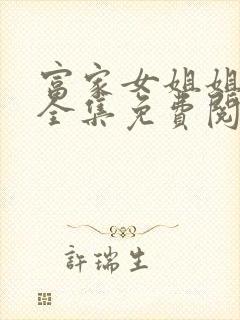 富家女姐姐
全集免费阅
許瑞生